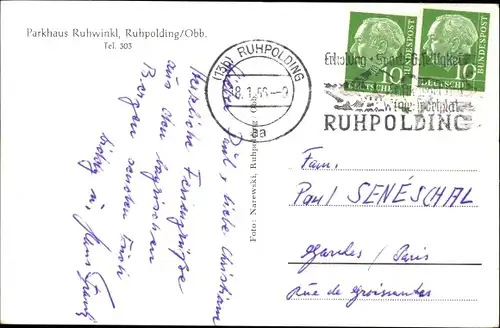 Parkhaus Ruhwinkl, Ruhpolding/Obb.
Tel. 303
(13b) RUHPOLDING
8.1.56-9
aa
DEUTSCHE BUNDESPOST
10
DEUTSCHE BUNDESPOST
10
Erholung Sport Geselligkeit
Wintersportplatz
RUHPOLDING
Lieber Paul, liebe Christiane
Herzliche Feriengrüße
aus den bayrischen
Bergen senden Euch
u. Hans Frantz
Foto: Narewski, Ruhpolding/Obb.
Fam.
Paul SENÉSCHAL
Garches / Paris
Rue de